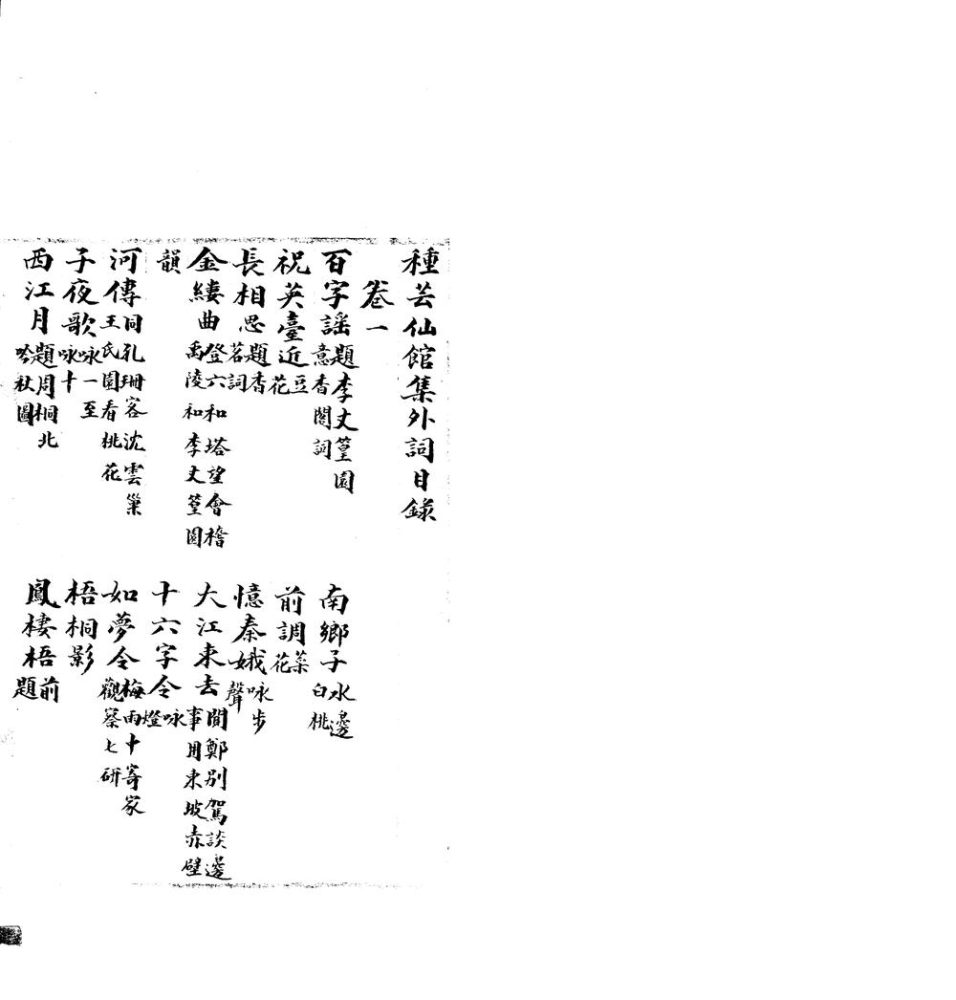 種芸仙館集外詞目錄
卷一
百字謠題李丈篁園意香閣詞
南鄉子水邊白桃
祝英臺近豆花
前調菜花
長相思題香茗詞
憶秦娥咏步聲
金縷曲登六和塔望會稽禹陵和李丈篁園
大江東去聞鄭別駕談邊事用東坡赤壁
韻
十六字令咏燈
河傳同孔珊客沈雲巢王氏園看桃花
如夢令梅雨十寄家觀察七研
子夜歌咏一至咏十
梧桐影
西江月題周桐北吟秋圖
鳳棲梧前題